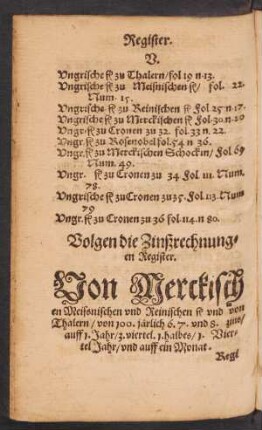 Register.
V.
Vngrische fl zu Thalern/fol 19 n 13.
Vngrische fl zu Meißnischen fl/ fol. 22.
Num. 15.
Vngrische. fl zu Reinischen fl Fol 25 n 17.
Vngrische fl zu Merckischen fl Fol 30 n 20
Vngr. fl zu Cronen zu 32. fol 33 n. 22.
Vngr. fl zu Rosenobel fol 54 n 36.
Vngr. fl zu Merckischen Schocken/ Fol 69
Num. 49.
Vngr. fl zu Cronen zu 34 Fol 111. Num.
78.
Vngrische fl zu Cronen zu 35. Fol 113. Num
79
Vngr. fl zu Cronen zu 36 fol 114. n 80.
Volgen die Zinßrechnung⸗
en Register.
Von Merckisch
en Meisnischen vnd Reinischen fl vnd von
Thalern/ von 100. järlich 6. 7. vnd 8. zins/
auff 1. Jahr/ 3. viertel. 1. halbes/ 1. Vier⸗
tel Jahr/ vnd auff ein Monat.
Regi